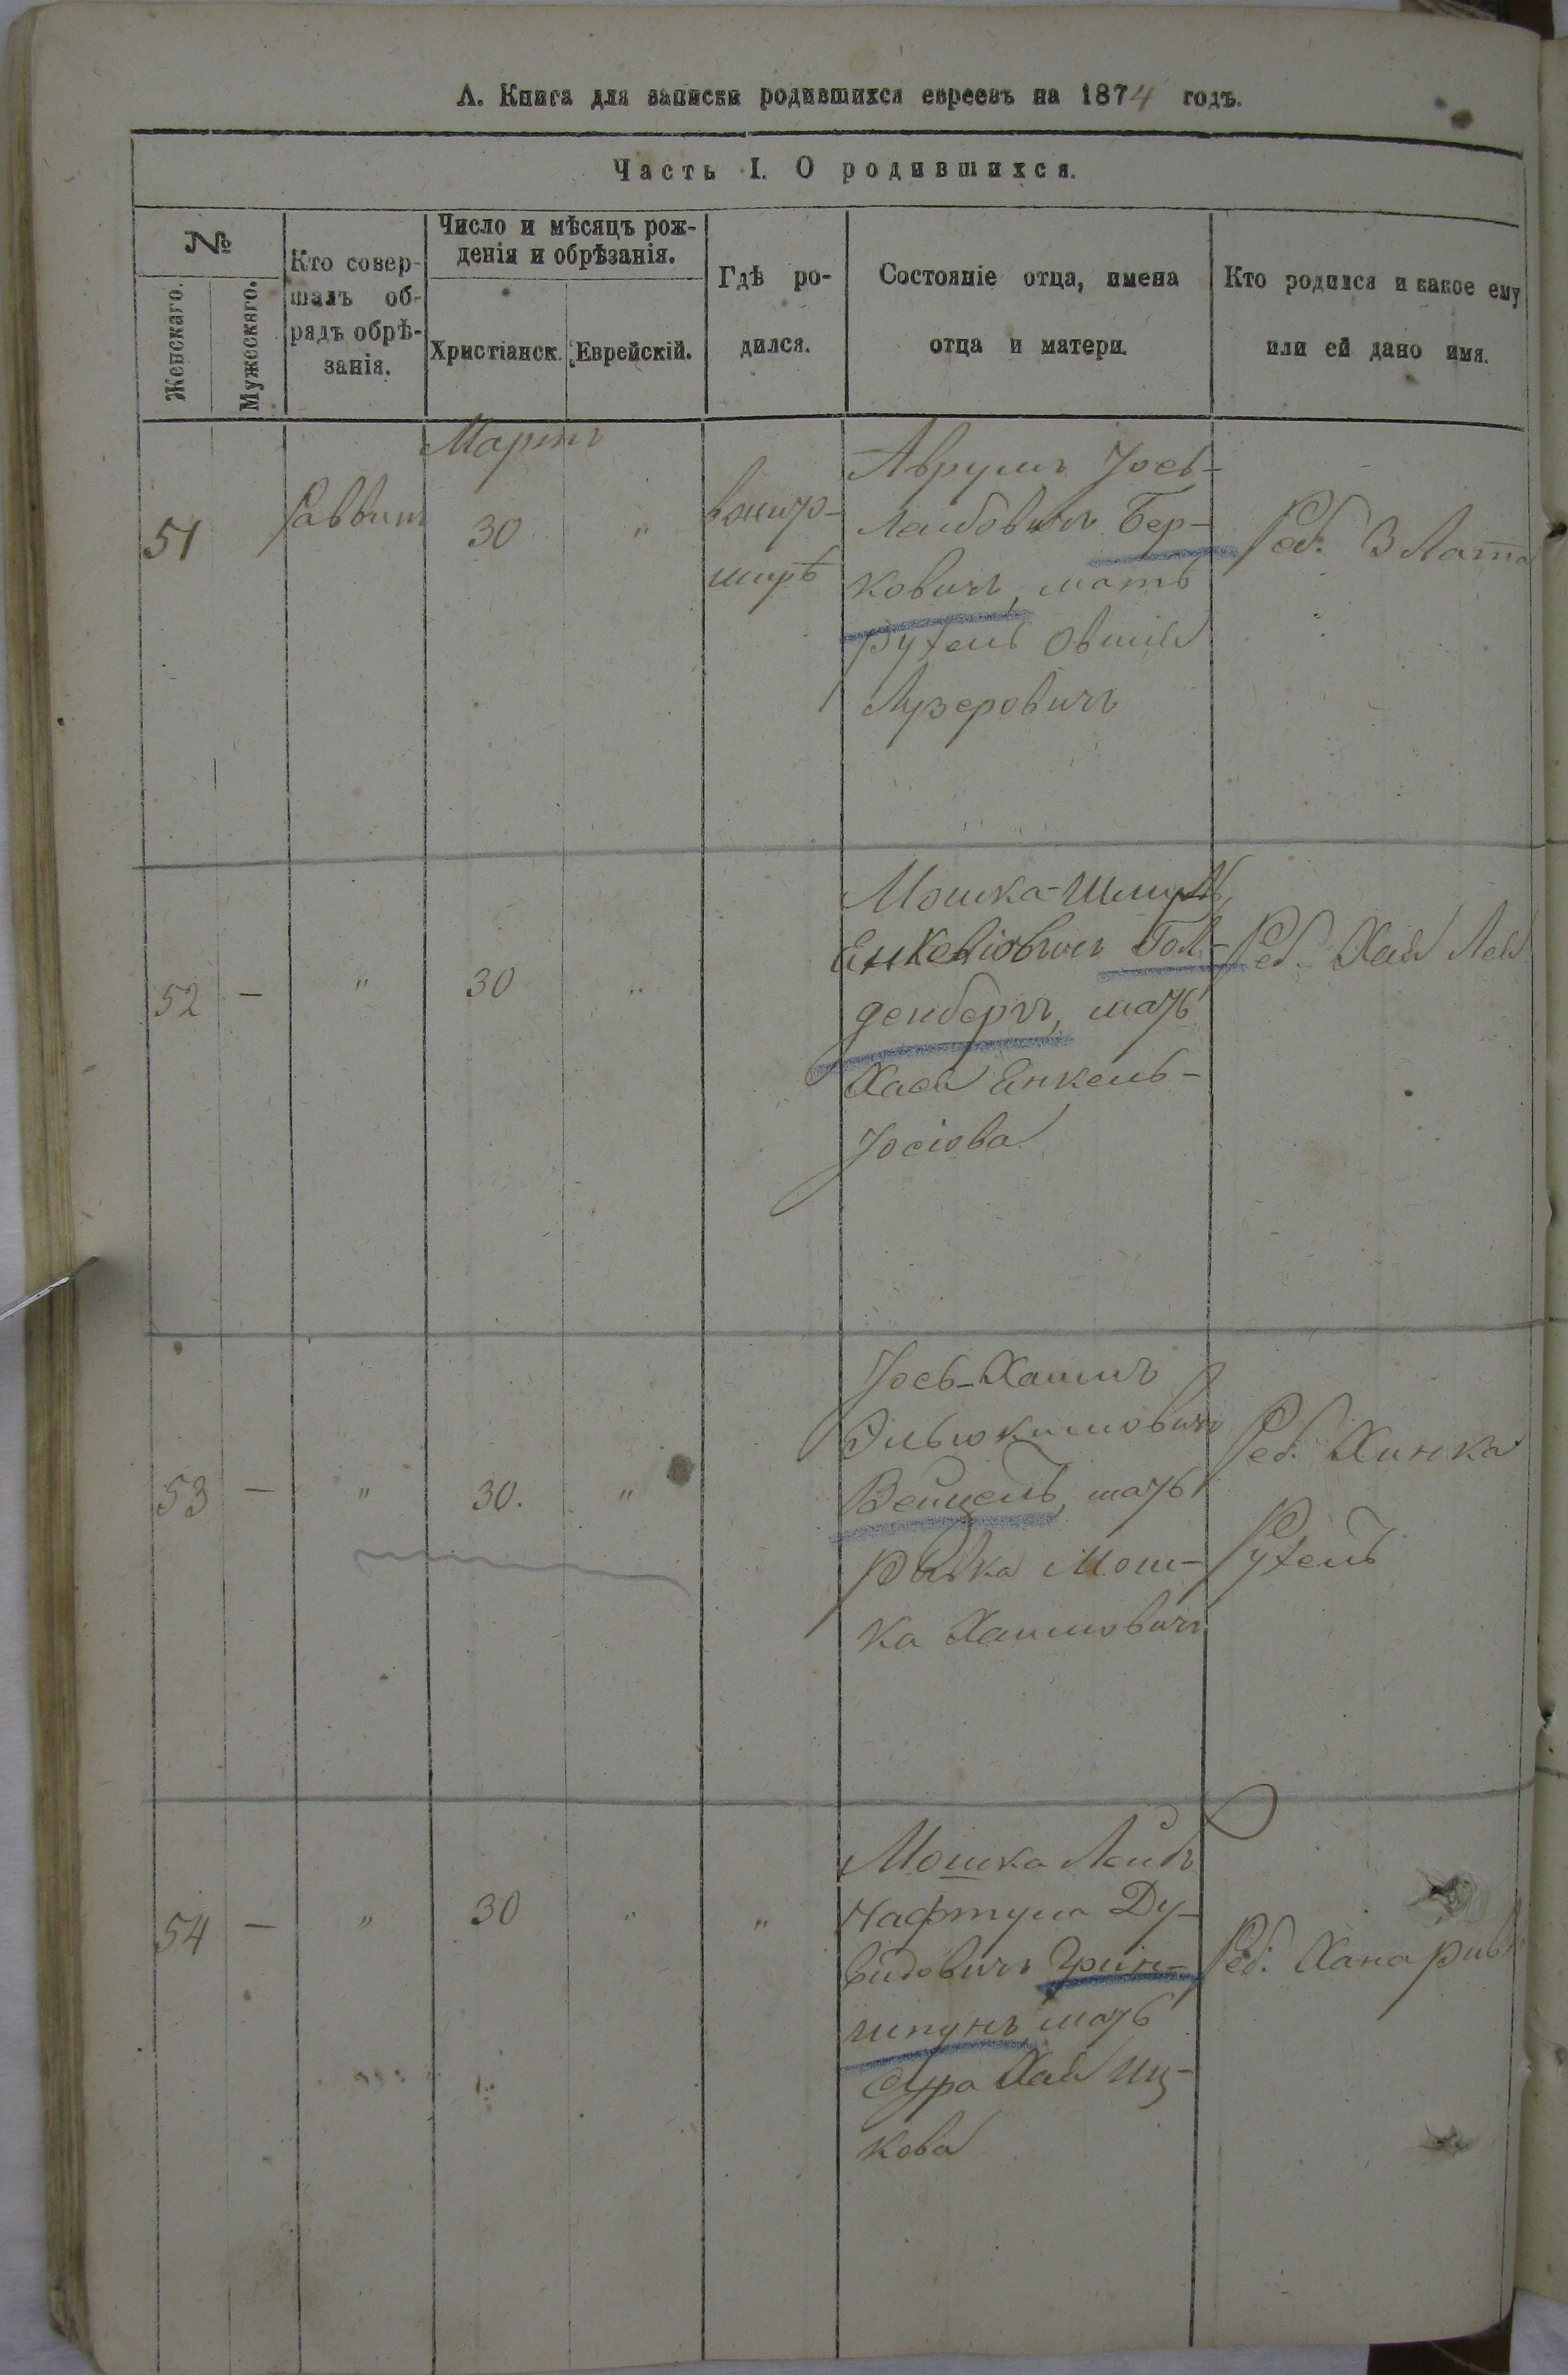 А. Книга для записки родившихся евреевъ на 1874 годъ.
Часть I. О родившихся.
№
Женскаго.
Мужескаго.
Кто совер-
шалъ об-
рядъ обрѣ-
занія.
Число и мѣсяцъ рож-
денія и обрѣзанія.
Христіанск.
Еврейскій.
Гдѣ ро-
дился.
Состояніе отца, имена
отца и матери.
Кто родился и какое ему
или ей дано имя.
Мартъ
51
Раввинъ
30
"
Аврумъ Іось-
Лейбовичъ Бер-
ковичъ, мать
Рухель Овшія
Лузеровичъ
Реб. Злата
52 —
"
30
"
Мошка-Шмуль
Енкелiовичъ Гол-
денбергъ, мать
Хася Енкель-
Іосіова
Реб. Хая Лея
53 —
"
30.
"
Іось-Хаимъ
Эльюкимовичъ
Вейцель, мать
Рывка Мош-
ка Хаимовичъ
Реб. Хинка
Рухель
54 —
"
30
"
"
Мошка Лейбъ
Нафтула Ду-
видовичъ Грин-
шпунъ, мать
Сура Хая Иц-
кова
Реб. Хана Ривка